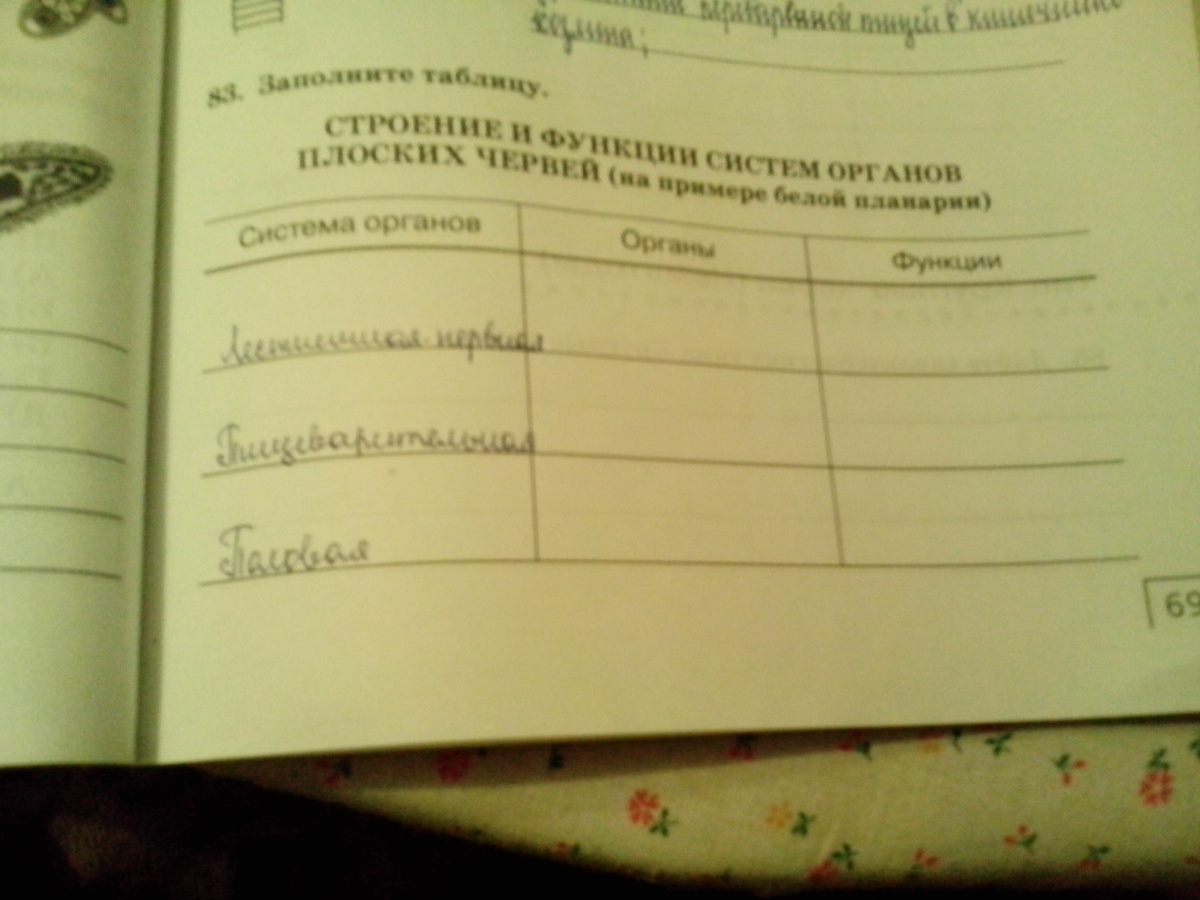 в кишечнике
83. Заполните таблицу.
СТРОЕНИЕ И ФУНКЦИИ СИСТЕМ ОРГАНОВ
ПЛОСКИХ ЧЕРВЕЙ (на примере белой планарии)
Система органов Органы Функции
Лестничная нервная
Пищеварительная
Половая
69